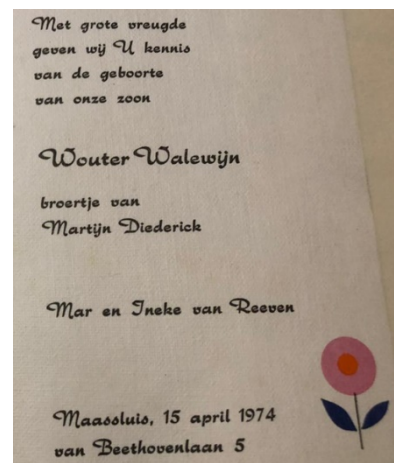 Met grote vreugde
geven wij U kennis
van de geboorte
van onze zoon
Wouter Walewijn
broertje van
Martijn Diederick
Mar en Ineke van Reeven
Maassluis, 15 april 1974
van Beethovenlaan 5